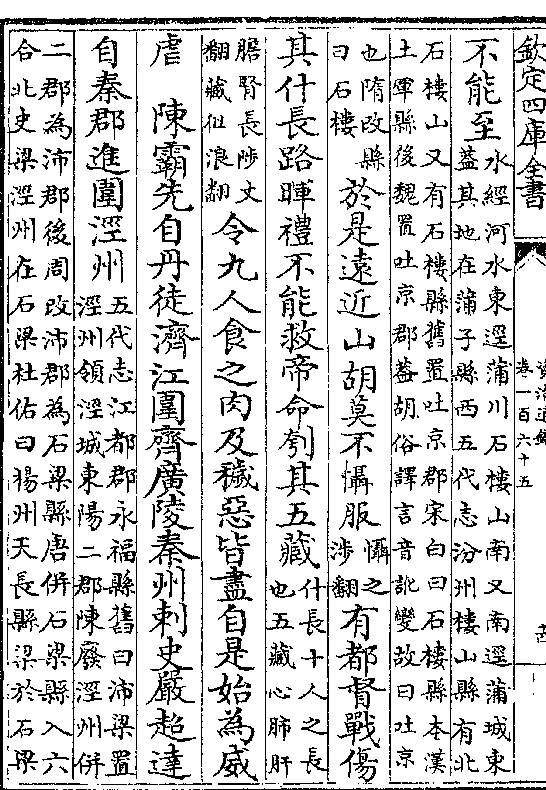 欽定四庫全書
資治通鑑
卷一百六十五
不能至
水經河水東逕蒲川石樓山南又南逕蒲城東
蓋其地在蒲子縣西五代志汾州樓山縣有北
石樓山又有石樓縣舊置吐京郡宋白曰石樓縣本漢
土軍縣後魏置吐京郡蓋胡俗譯言音訛變故曰吐京
也隋改縣
曰石樓
於是遠近山胡莫不懾服
懾之
涉翻
有都督戰傷
其什長路暉禮不能救帝命刳其五藏
什長十人之長
也五藏心肺肝
脾腎長陟丈
翻藏徂浪翻
令九人食之肉及穢惡皆盡自是始為威
虐
陳霸先自丹徒濟江圍齊廣陵秦州刺史嚴超達
自秦郡進圍涇州
五代志江都郡永福縣舊曰沛梁置
涇州領涇城東陽二郡陳廢涇州併
二郡為沛郡後周改沛郡為石梁縣唐併石梁縣入六
合北史梁涇州在石梁杜佑曰揚州天長縣梁於石梁